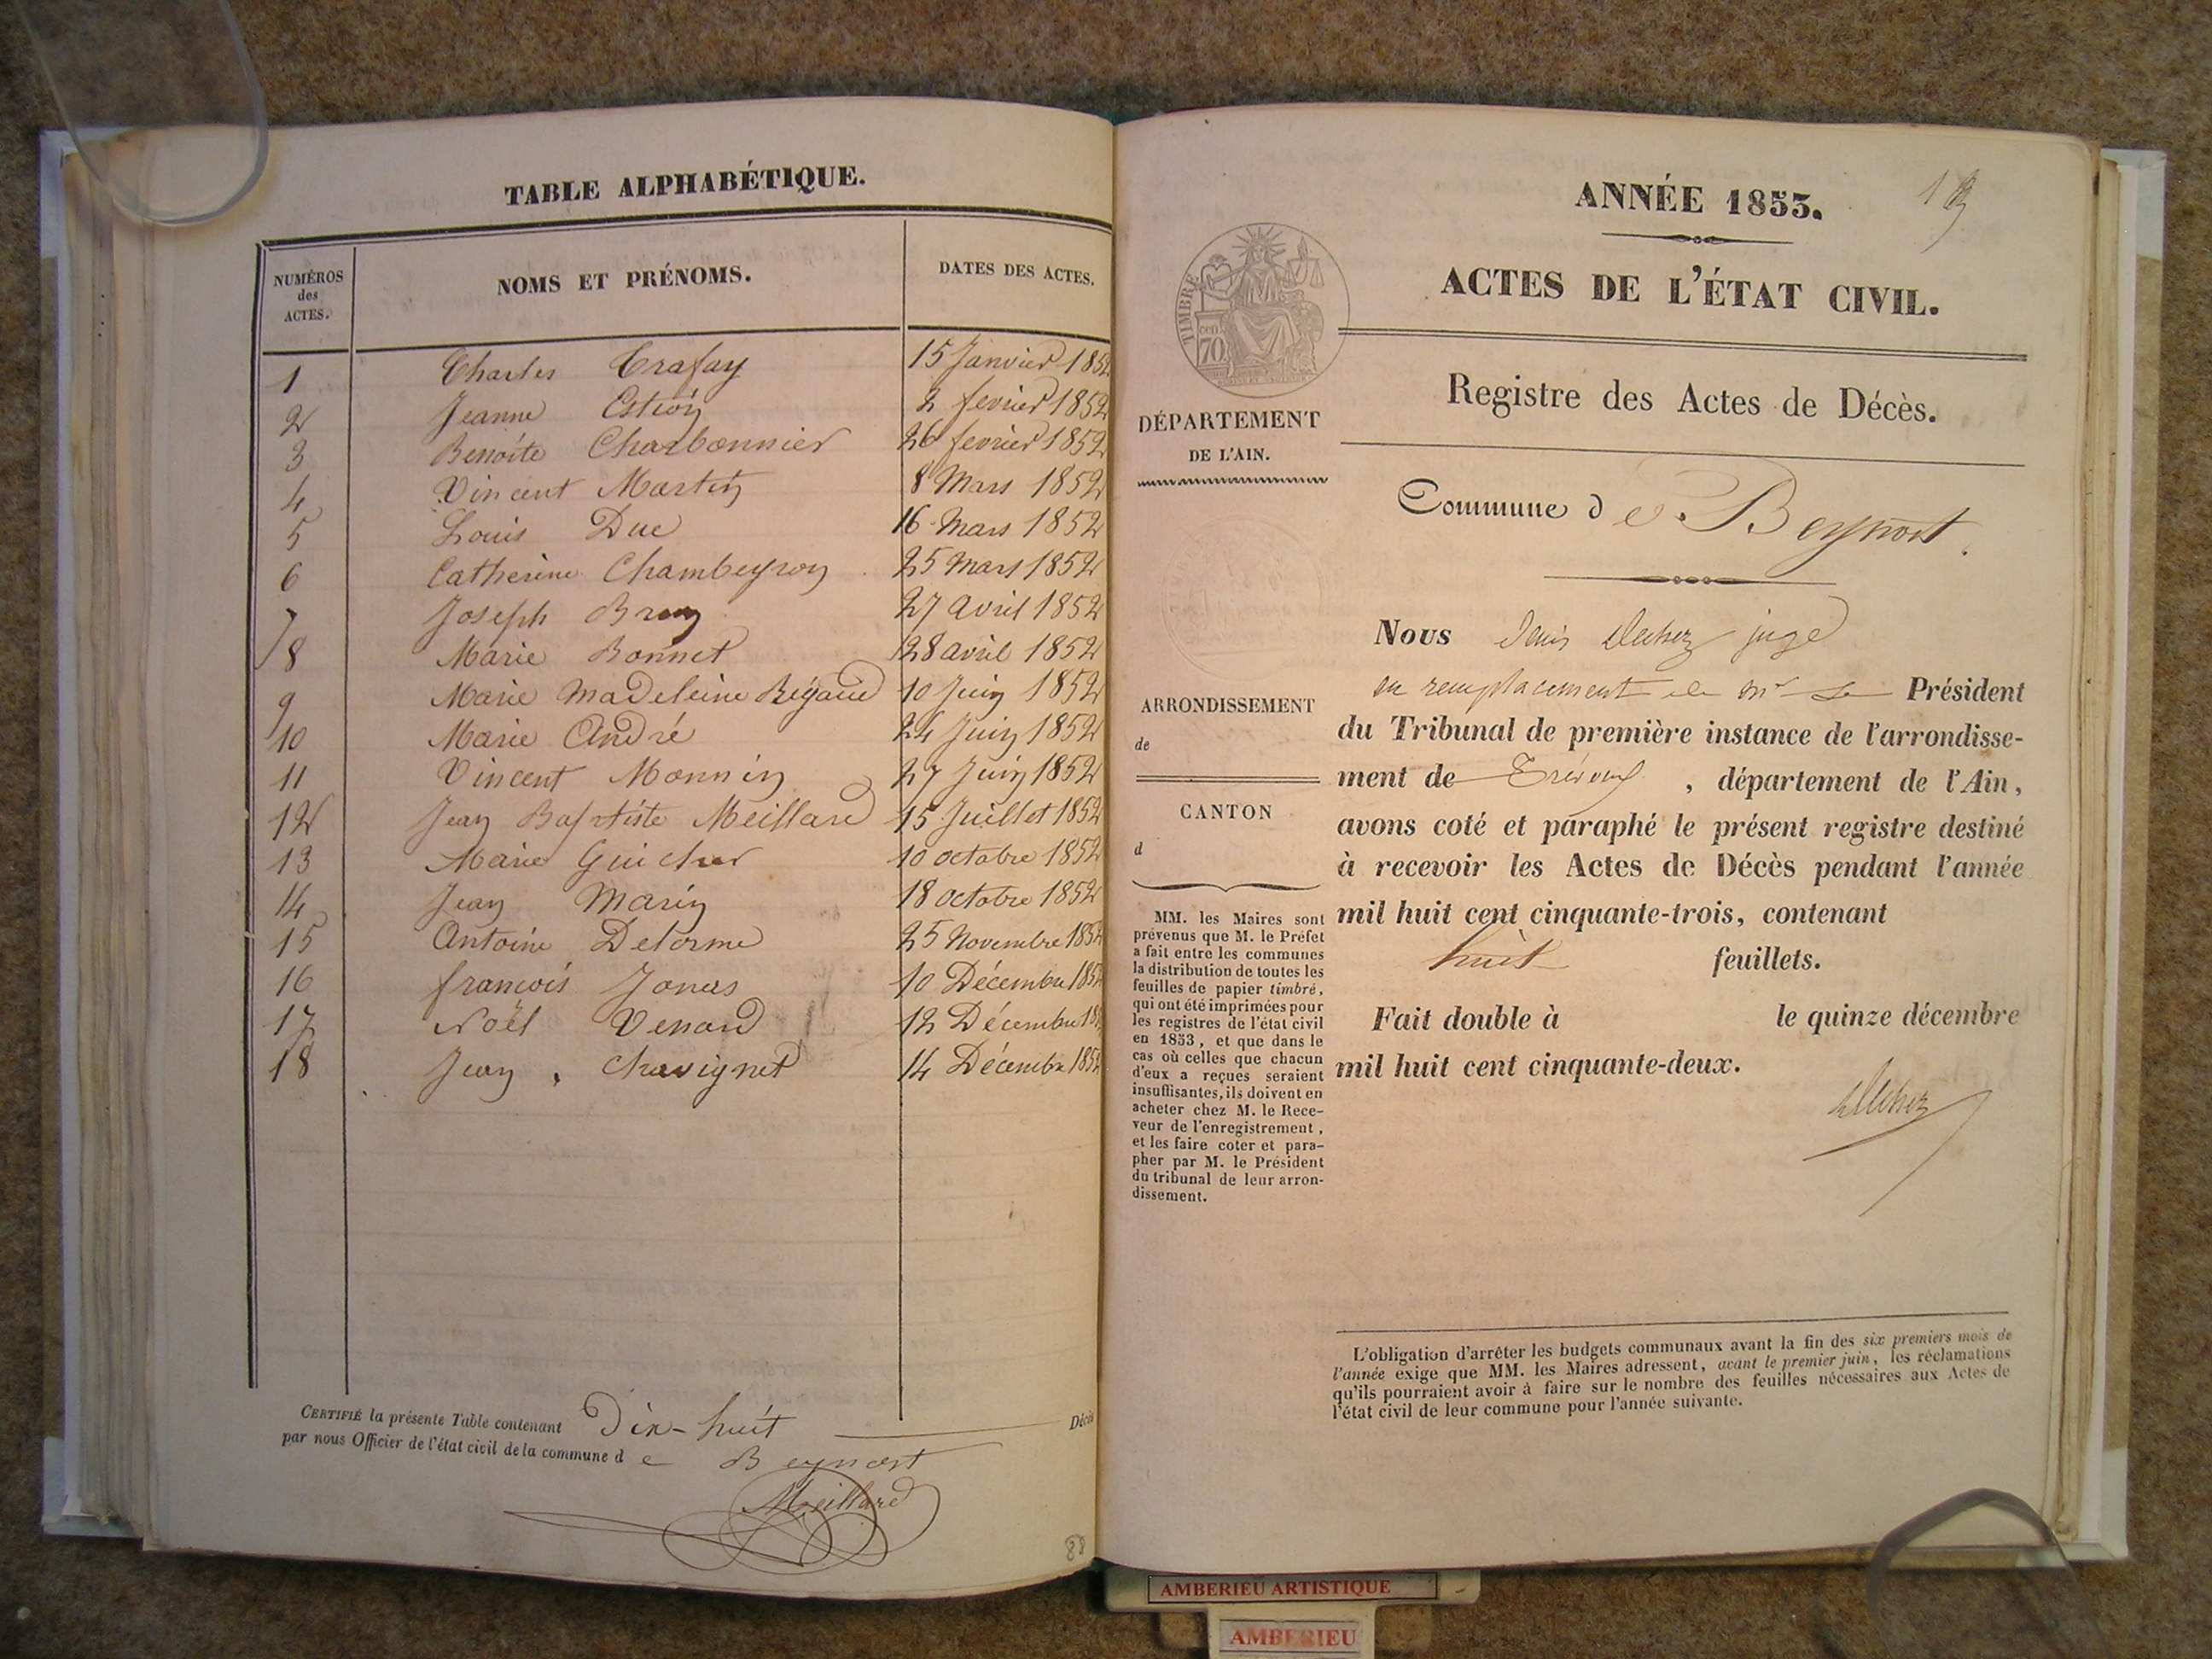 TABLE ALPHABÉTIQUE.
NUMÉROS des ACTES. NOMS ET PRÉNOMS. DATES DES ACTES.
1 Charles Crafay 15 Janvier 1852
2 Jeanne 2 fevrier 1852
3 Benoite Charbonnier 26 fevrier 1852
4 Vincent Martin 8 Mars 1852
5 Louis Duc 16 Mars 1852
6 Catherine Chambeyron 25 Mars 1852
7 Joseph Brun 27 avril 1852
8 Marie Bonnet 28 avril 1852
9 Marie Madeleine Rigaud 10 Juin 1852
10 Marie André 24 Juin 1852
11 Vincent Monnin 27 Juin 1852
12 Jean Baptiste Meillard 15 Juillet 1852
13 Marie Guicher 10 octobre 1852
14 Jean Marin 18 octobre 1852
15 Antoine Delorme 25 Novembre 1852
16 françois Jonas 10 Décembre 1852
17 Noël Venard 12 Décembre 18
18 Jean Chavignet 14 Décembre 1852
CERTIFIÉ la présente Table contenant Dix-huit Décès
par nous Officier de l'état civil de la commune de Beynost
Meillard
88
ANNÉE 1853.
ACTES DE L'ÉTAT CIVIL.
TIMBRE
cen
70
Registre des Actes de Décès.
DÉPARTEMENT
DE L'AIN.
Commune de Beynost.
ARRONDISSEMENT
de
CANTON
d
MM. les Maires sont
prévenus que M. le Préfet
a fait entre les communes
la distribution de toutes les
feuilles de papier timbré,
qui ont été imprimées pour
les registres de l'état civil
en 1853, et que dans le
cas où celles que chacun
d'eux a reçues seraient
insuffisantes, ils doivent en
acheter chez M. le Rece-
veur de l'enregistrement,
et les faire coter et para-
pher par M. le Président
du tribunal de leur arron-
dissement.
Nous Denis juge
en remplacement de Mr le Président
du Tribunal de première instance de l'arrondisse-
ment de Trévoux, département de l'Ain,
avons coté et paraphé le présent registre destiné
à recevoir les Actes de Décès pendant l'année
mil huit cent cinquante-trois, contenant
huit feuillets.
Fait double à le quinze décembre
mil huit cent cinquante-deux.
L'obligation d'arrêter les budgets communaux avant la fin des six premiers mois de
l'année exige que MM. les Maires adressent, avant le premier juin, les réclamations
qu'ils pourraient avoir à faire sur le nombre des feuilles nécessaires aux Actes de
l'état civil de leur commune pour l'année suivante.
AMBERIEU ARTISTIQUE
AMBERIEU